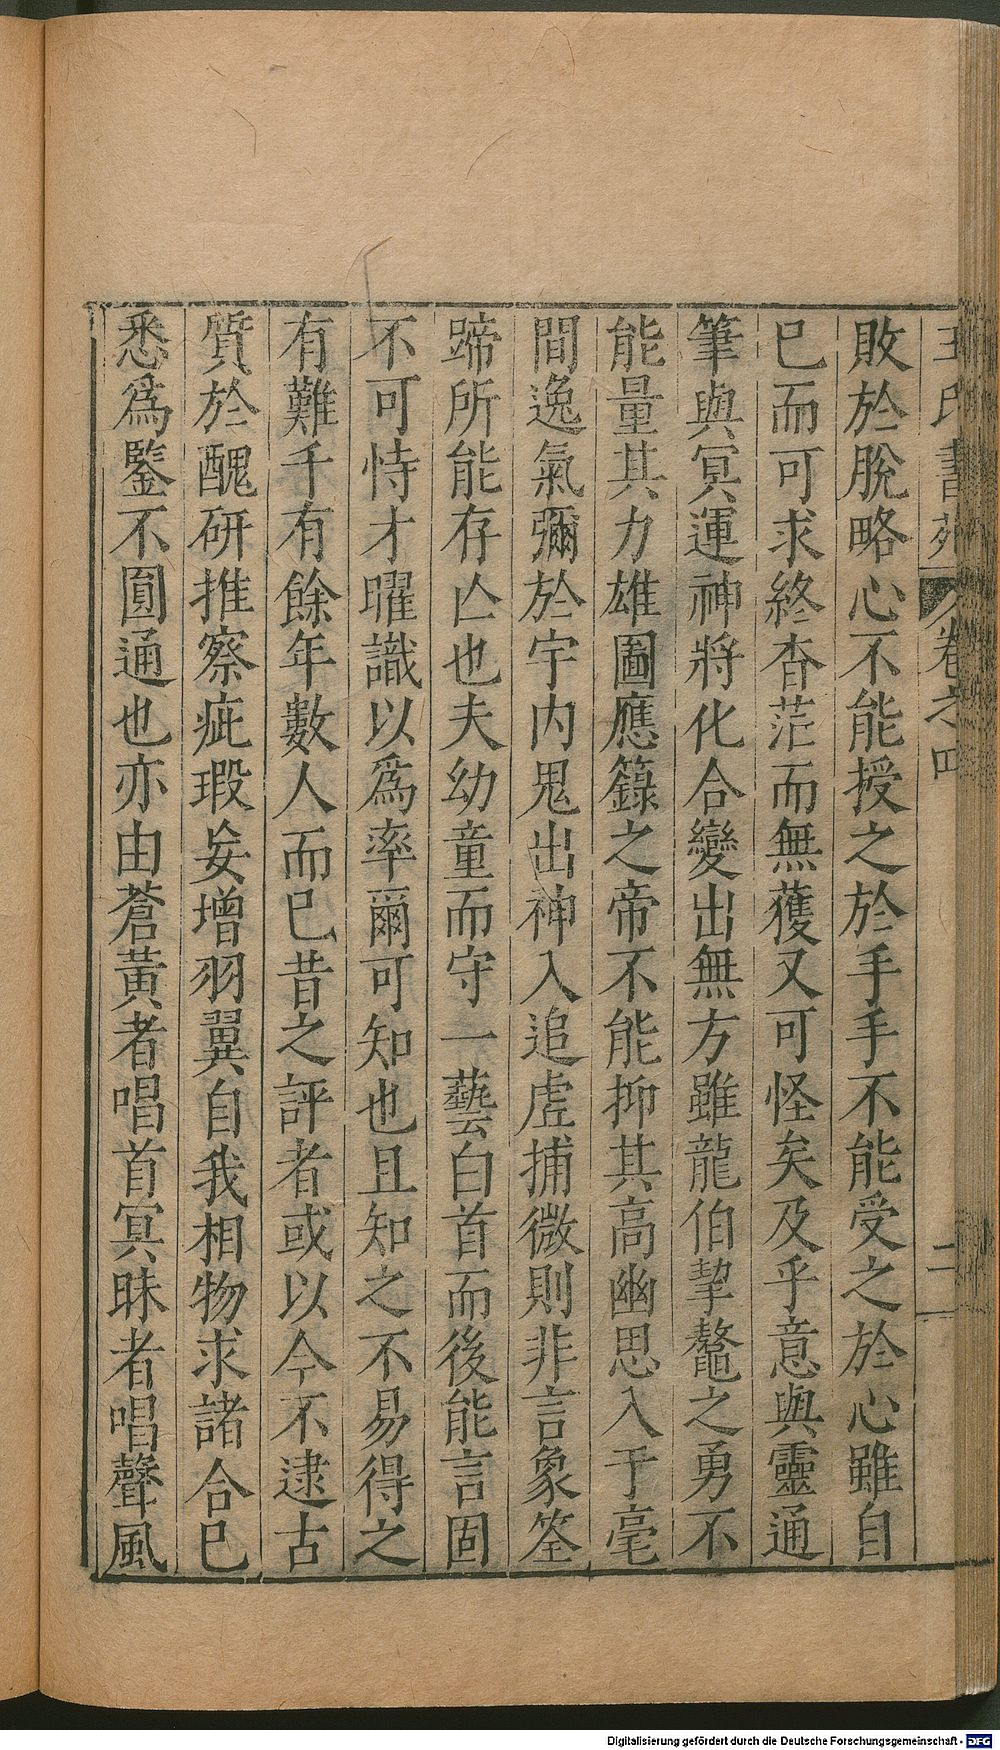 王氏書苑 卷之四 二
敗於脫略心不能授之於手手不能受之於心雖自
巳而可求終杳茫而無獲又可怪矣及乎意與靈通
筆與冥運神將化合變出無方雖龍伯挈鼇之勇不
能量其力雄圖應籙之帝不能抑其高幽思入于毫
間逸氣彌於宇内鬼出神入追虗捕微則非言象筌
蹄所能存亾也夫幼童而守一藝白首而後能言固
不可恃才曜識以爲率爾可知也且知之不易得之
有難千有餘年數人而巳昔之評者或以今不逮古
質於醜研推察疵瑕妄增羽翼自我相物求諸合巳
悉爲鑒不圓通也亦由蒼黃者唱首冥昧者唱聲風
Digitalisierung gefördert durch die Deutsche Forschungsgemeinschaft - DFG